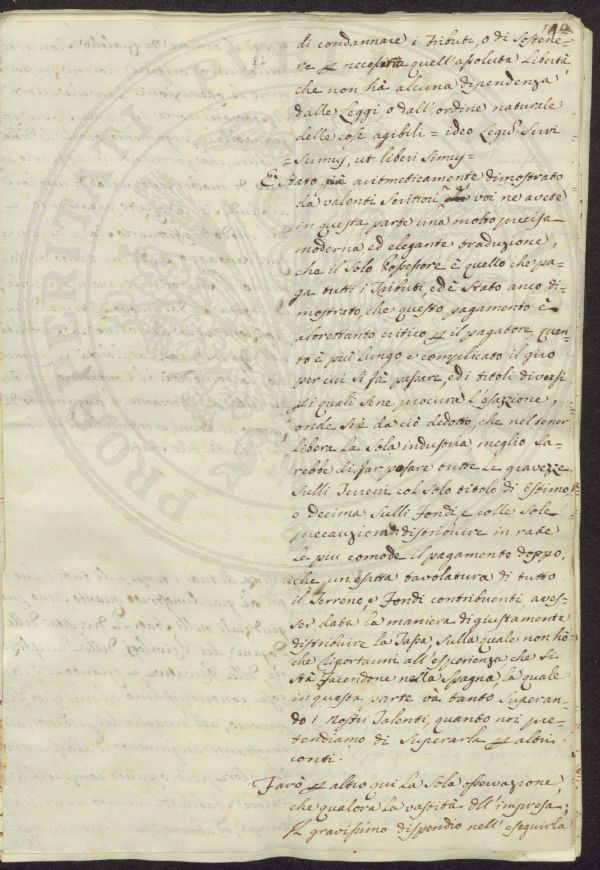 di condannare i Tributi, o di sostene-
re p necessita quell'assoluta libertà,
che non hà alcuna dipendenza
dalle Leggi, o dall'ordine naturale
delle cose agibili = ideo Legu Servi
= Sumus, ut liberi simus =
E stato più aritmeticamente dimostrato
da valenti Scrittori, e voi ne avete
in questa parte una molto precisa
moderna ed elegante traduzione,
che il solo Possessore è quello che pa-
ga tutti i Tributi, ed è stato anco di-
mostrato, che questo pagamento è
altrettanto critico p il pagatore, quan-
to è più lungo e complicato il giro
per cui si fà passare, ed i titoli diversi
p i quali se ne procura l'esazzione,
onde si è da ciò dedotto, che nel tener
libera la sola industria meglio sa-
rebbe di far posare tutte le gravezze
sulli Terreni col solo titolo di Estimo,
o decima sulli fondi e colle sole
precauzioni di distribuire in rate
le più comode il pagamento doppo,
che un esatta tavolatura di tutto
il Terreno e Fondi contribuenti, aves-
ser data la maniera di giustamente
distribuire la Tassa, sulla quale non hò
che riportarmi all'esperienza, che si
stà facendone nella Spagna, la quale
in questa parte va tanto superan-
do i nostri Talenti, quanto noi pre-
tendiamo di superarla p altri
conti.
Farò p altro qui la sola osservazione,
che qualora la vastità dell'impresa,
il gravissimo dispendio nell'eseguirla